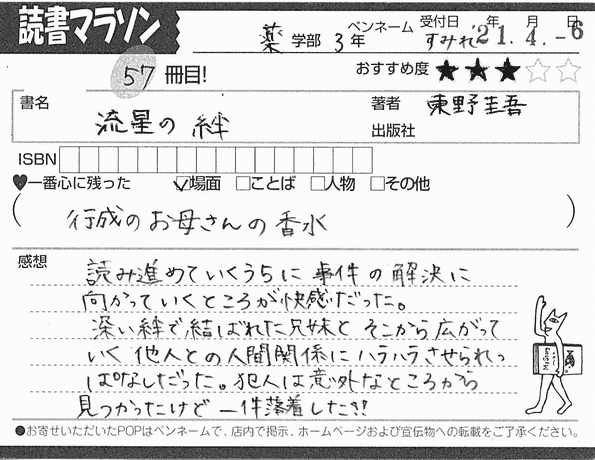 読書マラソン
薬 学部 3年 ペンネーム すみれ 受付日 '21年 4月 -6日
57冊目! おすすめ度 ★★★☆☆
書名 流星の絆 著者 東野圭吾
出版社
ISBN
♥一番心に残った ☑場面 □ことば □人物 □その他
(行成のお母さんの香水)
感想
読み進めていくうちに事件の解決に
向かっていくところが快感だった。
深い絆で結ばれた兄妹とそこから広がって
いく他人との人間関係にハラハラさせられっ
ぱなしだった。犯人は意外なところから
見つかったけど一件落着したさ!!
●お寄せいただいたPOPはペンネームで、店内で掲示、ホームページおよび宣伝物への転載をご了承ください。